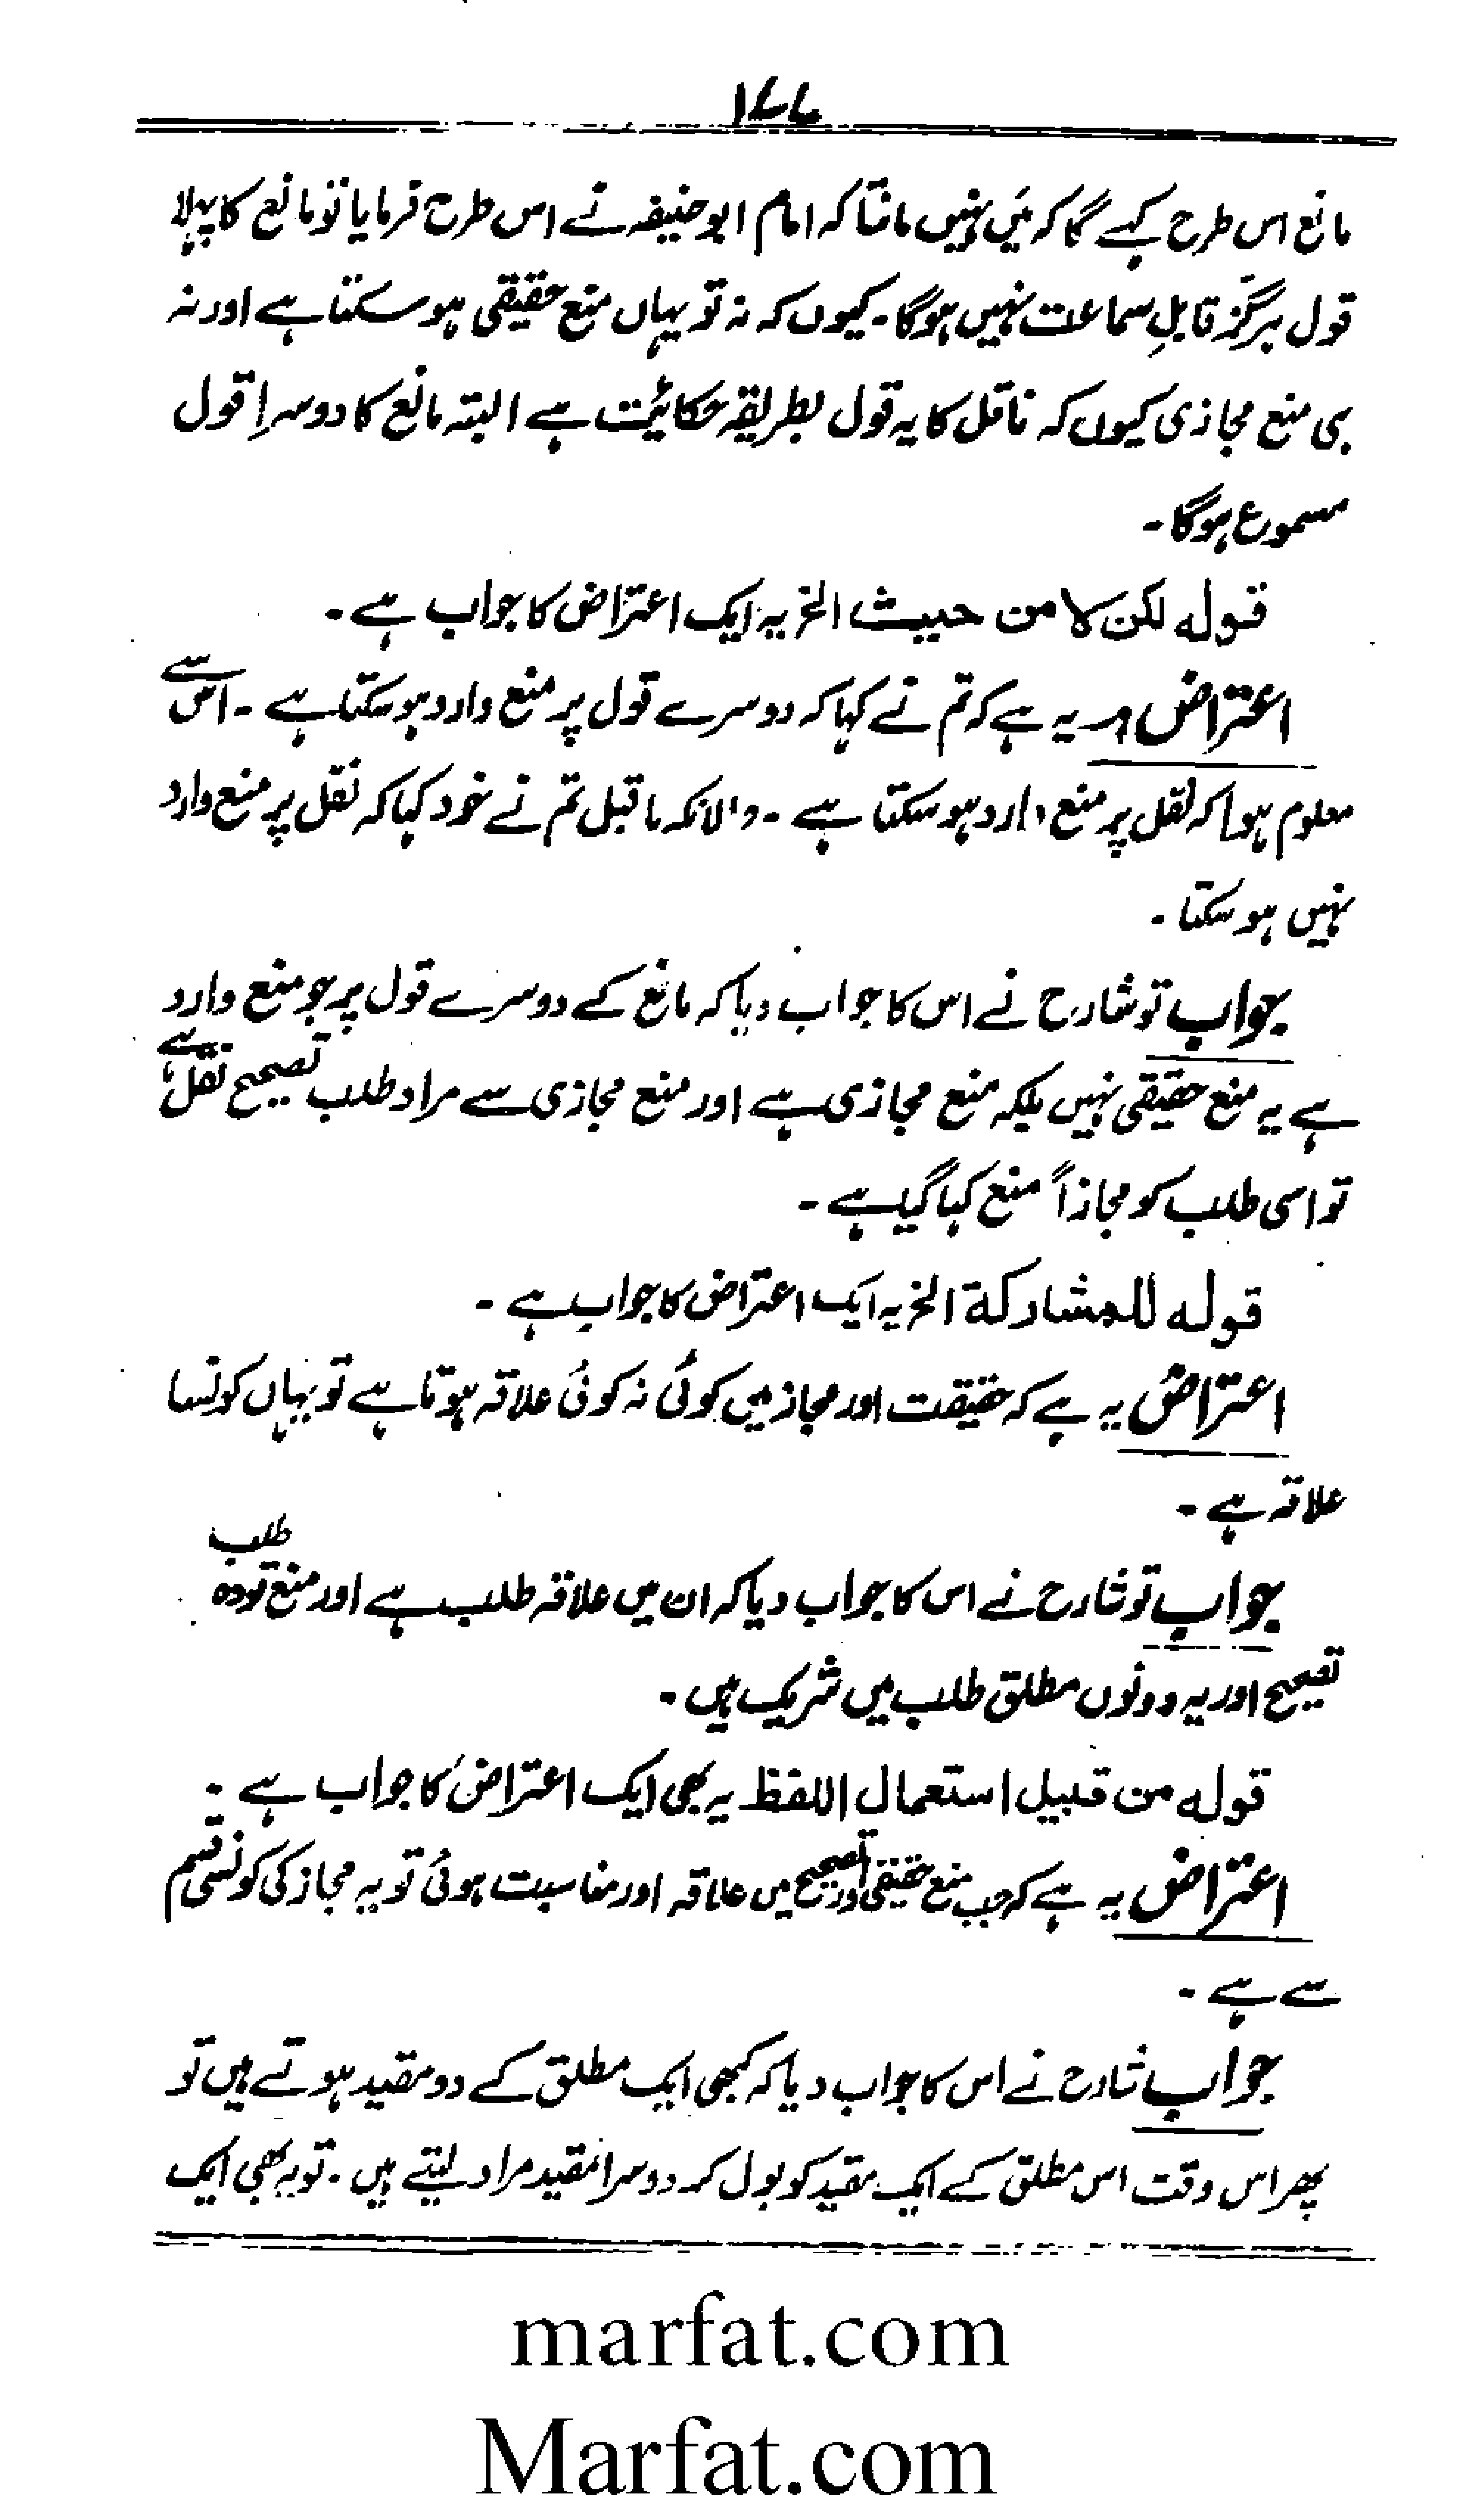 ۱۷۷
مانع اس طرح کہے گا کہ میں نہیں مانتا کہ امام ابو حنیفہ نے اس طرح فرمایا تو مانع کا پہلا
قول ہرگز قابلِ سماعت نہیں ہوگا۔ کیوں کہ نہ تو یہاں منع حقیقی ہو سکتا ہے اور نہ
ہی منع مجازی کیوں کہ ناقل کا یہ قول بطریقہ حکائیت ہے البتہ مانع کا دوسرا قول
مسموع ہوگا۔
قولہ لکن لا من حیث الخ یہ ایک اعتراض کا جواب ہے۔
اعتراض :۔ یہ ہے کہ تم نے کہا کہ دوسرے قول پر منع وارد ہو سکتا ہے۔ اس سے
معلوم ہوا کہ نقل پر منع وارد ہو سکتا ہے۔ حالانکہ ما قبل تم نے خود کہا کہ نقل پر منع وارد
نہیں ہو سکتا۔
جواب تو شارح نے اس کا جواب دیا کہ مانع کے دوسرے قول پر جو منع وارد
ہے یہ منع حقیقی نہیں بلکہ منع مجازی ہے اور منع مجازی سے مراد طلب تصحیح نقل ہے
تو اسی طلب کو مجازاً منع کہا گیا ہے۔
قولہ للمشارکة الخ یہ ایک اعتراض کا جواب ہے۔
اعتراض یہ ہے کہ حقیقت اور مجاز میں کوئی نہ کوئی علاقہ ہوتا ہے تو یہاں کونسا
علاقہ ہے۔
جواب تو شارح نے اس کا جواب دیا کہ ان میں علاقہ طلب ہے اور منع تو وہ طلب
تصحیح اور یہ دونوں مطلق طلب میں شریک ہیں۔
قولہ من قبیل استعمال اللفظ یہ بھی ایک اعتراض کا جواب ہے۔
اعتراض یہ ہے کہ جب منع حقیقی اور تصحیح میں علاقہ اور مناسبت ہوئی تو یہ مجاز کی کونسی قسم
سے ہے۔
جواب شارح نے اس کا جواب دیا کہ کبھی ایک مطلق کے دو مقید ہوتے ہیں تو
پھر اس وقت اس مطلق کے ایک مقید کو بول کر دوسرا مقید مراد لیتے ہیں۔ تو یہ بھی ایک
marfat.com
Marfat.com